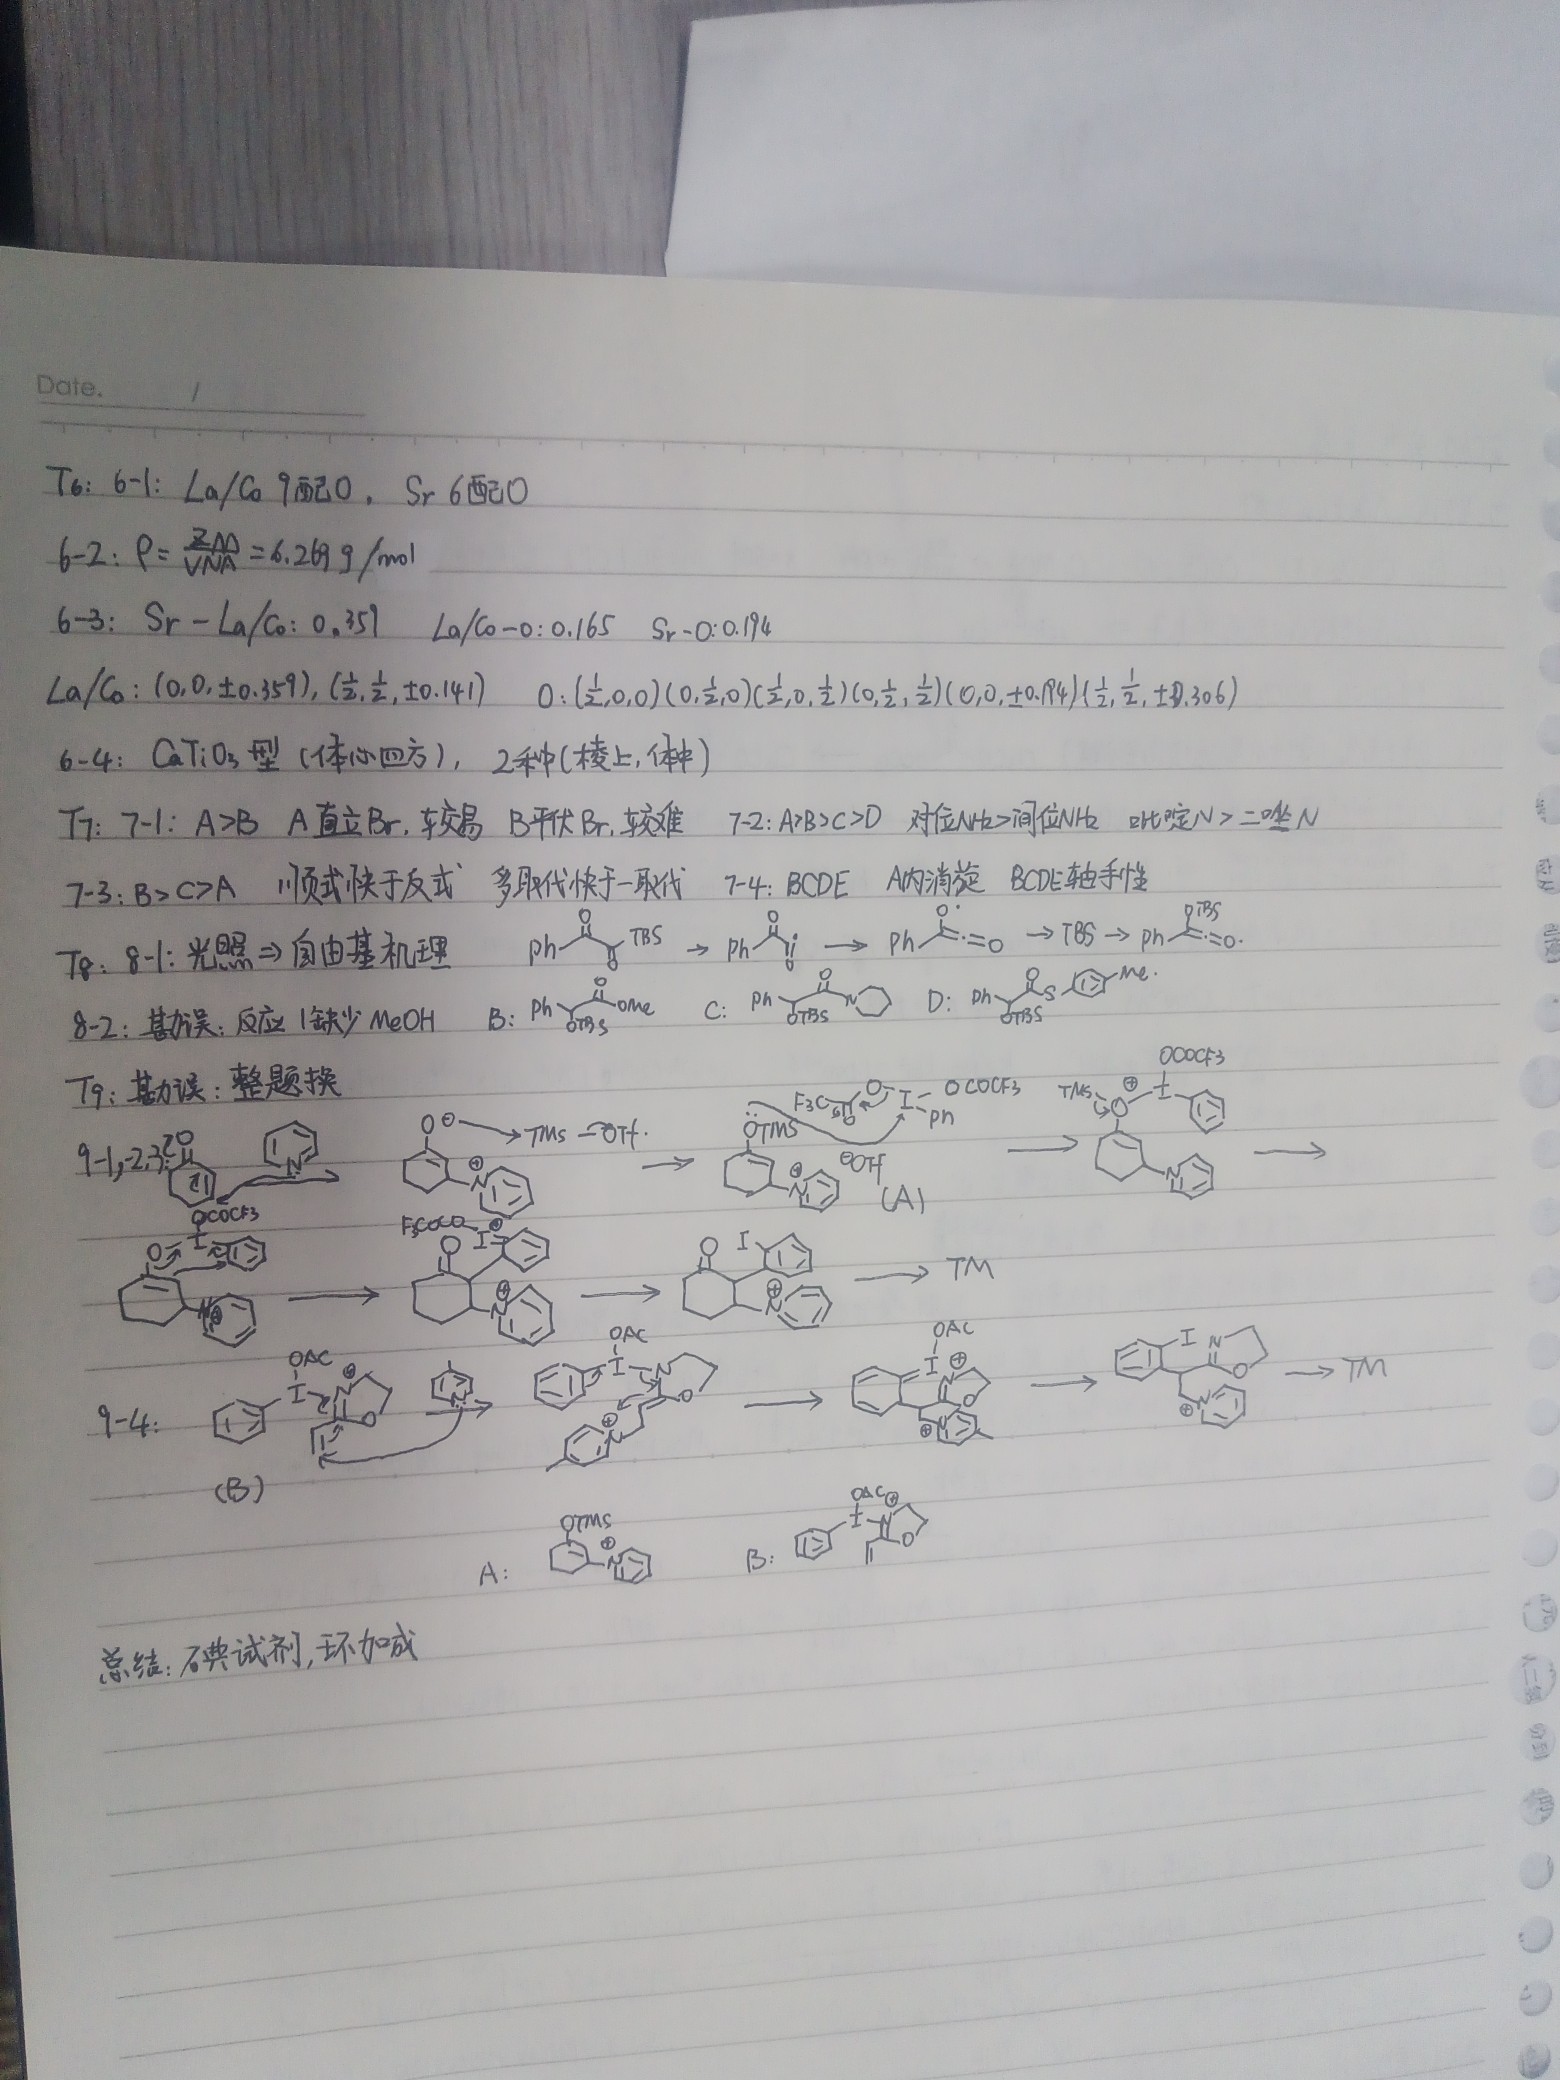 Date. /
T6: 6-1: La/Co 9配O, Sr 6配O
6-2: ρ= ZM/VNA =6.269 g/mol
6-3: Sr-La/Co: 0.359 La/Co-O: 0.165 Sr-O: 0.194
La/Co: (0,0,±0.359), (½,½,±0.141) O: (½,0,0)(0,½,0)(½,0,½)(0,½,½)(0,0,±0.194)(½,½,±0.306)
6-4: CaTiO3型 (体心四方), 2种(棱上,体中)
T7: 7-1: A>B A直立Br,较易 B平伏Br,较难 7-2: A>B>C>D 对位NH2>间位NH2 吡啶N>二唑N
7-3: B>C>A 顺式快于反式 多取代快于一取代 7-4: BCDE A内消旋 BCDE轴手性
T8: 8-1: 光照⇒自由基机理 Ph O O TBS → Ph O O → Ph O O → TBS → Ph OTBS O
8-2: 勘误: 反应1缺少MeOH B: Ph O OMe OTBS C: Ph O N OTBS D: Ph O S Me OTBS
T9: 勘误: 整题换
9-1,-2,3: O N → O⊖ N⊕ → TMS-OTf → OTMS N⊕ ⊖OTf (A) F3C O O I OCOCF3 Ph → TMS O⊕ I OCOCF3 N →
OCOCF3 O I N⊕ → F3COCO I⊕ O N⊕ → O I N⊕ → TM
9-4: OAc I N⊕ O (B) N → OAc I N O N⊕ → OAc I N⊕ O N⊕ → I N O N⊕ → TM
A: OTMS N⊕ B: OAc I N⊕ O
总结: 碘试剂,环加成